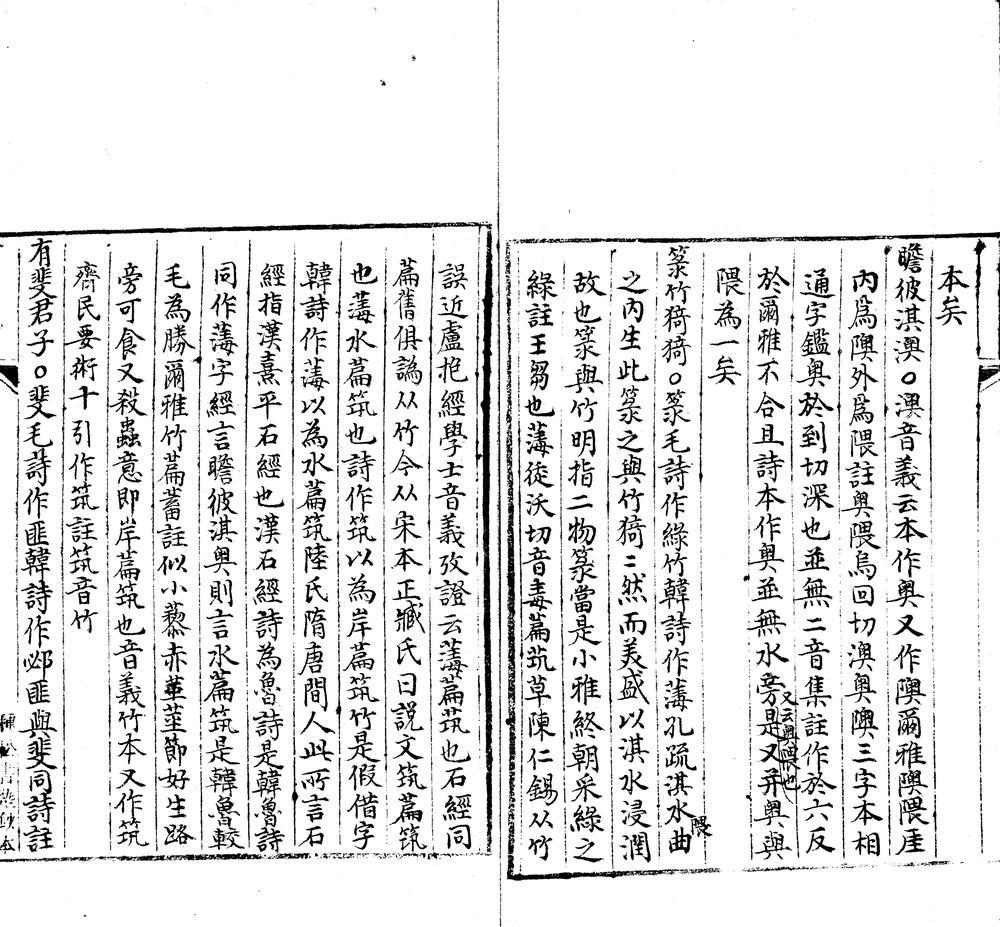 本矣
瞻彼淇澳○澳音義云本作奥又作隩爾雅隩隈厓
内為隩外為隈註奥隈烏回切澳奥隩三字本相
通字鑑奥於到切深也並無二音集註作於六反
於爾雅不合且詩本作奥並無水旁是又并奥與
又云奥隈也
隈為一矣
菉竹猗猗○菉毛詩作綠竹韓詩作薄孔疏淇水曲
隈
之内生此菉之與竹猗〻然而美盛以淇水浸潤
故也菉與竹明指二物菉當是小雅終朝采綠之
綠註王芻也薄徒沃切音毒萹茿草陳仁錫从竹
誤近盧抱經學士音義攷證云薄萹茿也石經同
萹舊俱譌从竹今从宋本正臧氏曰説文茿萹筑
也薄水萹茿也詩作筑以為岸萹筑竹是假借字
韓詩作薄以為水萹筑陸氏隋唐間人此所言石
經指漢熹平石經也漢石經詩為魯詩是韓魯詩
同作薄字經言瞻彼淇奥則言水萹筑是韓魯較
毛為勝爾雅竹萹蓄註似小藜赤莖節好生路
旁可食又殺蟲意即岸萹筑也音義竹本又作筑
齊民要術十引作筑註筑音竹
有斐君子○斐毛詩作匪韓詩作邲匪與斐同詩註